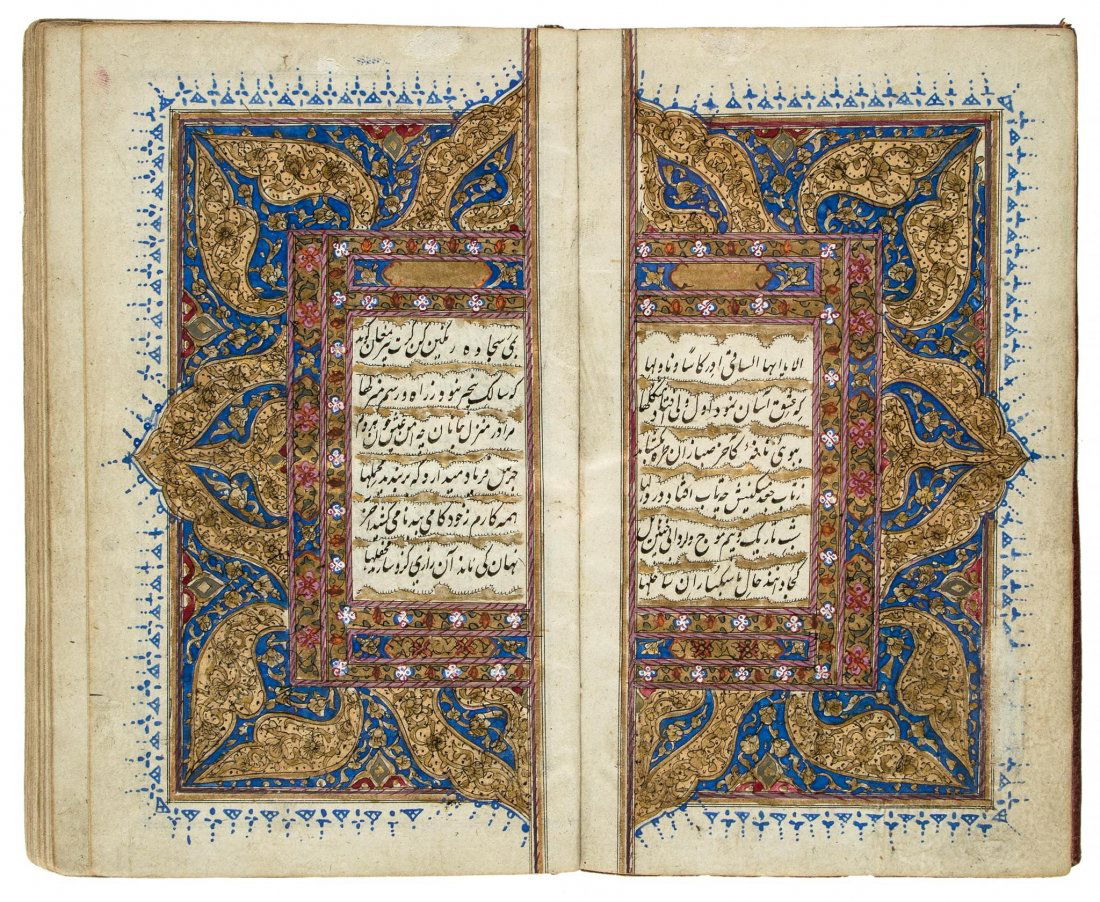 الا یا ایها الساقی ادر کاسا و ناولها
که عشق آسان نمود اول ولی افتاد مشکلها
ببوی نافهٔ کاخر صبا زان طره بگشاید
ز تاب جعد مشکینش چه تاب افتاد در دلها
شب تاریک و بیم موج و گردابی چنین هایل
کجا دانند حال ما سبکباران ساحلها
بمی سجاده رنگین کن گرت پیر مغان گوید
که سالک بیخبر نبود ز راه و رسم منزلها
مرا در منزل جانان چه امن عیش چون هر دم
جرس فریاد میدارد که بربندید محملها
همه کارم ز خود کامی ببدنامی کشید آخر
نهان کی ماند آن رازی کزو سازند محفلها